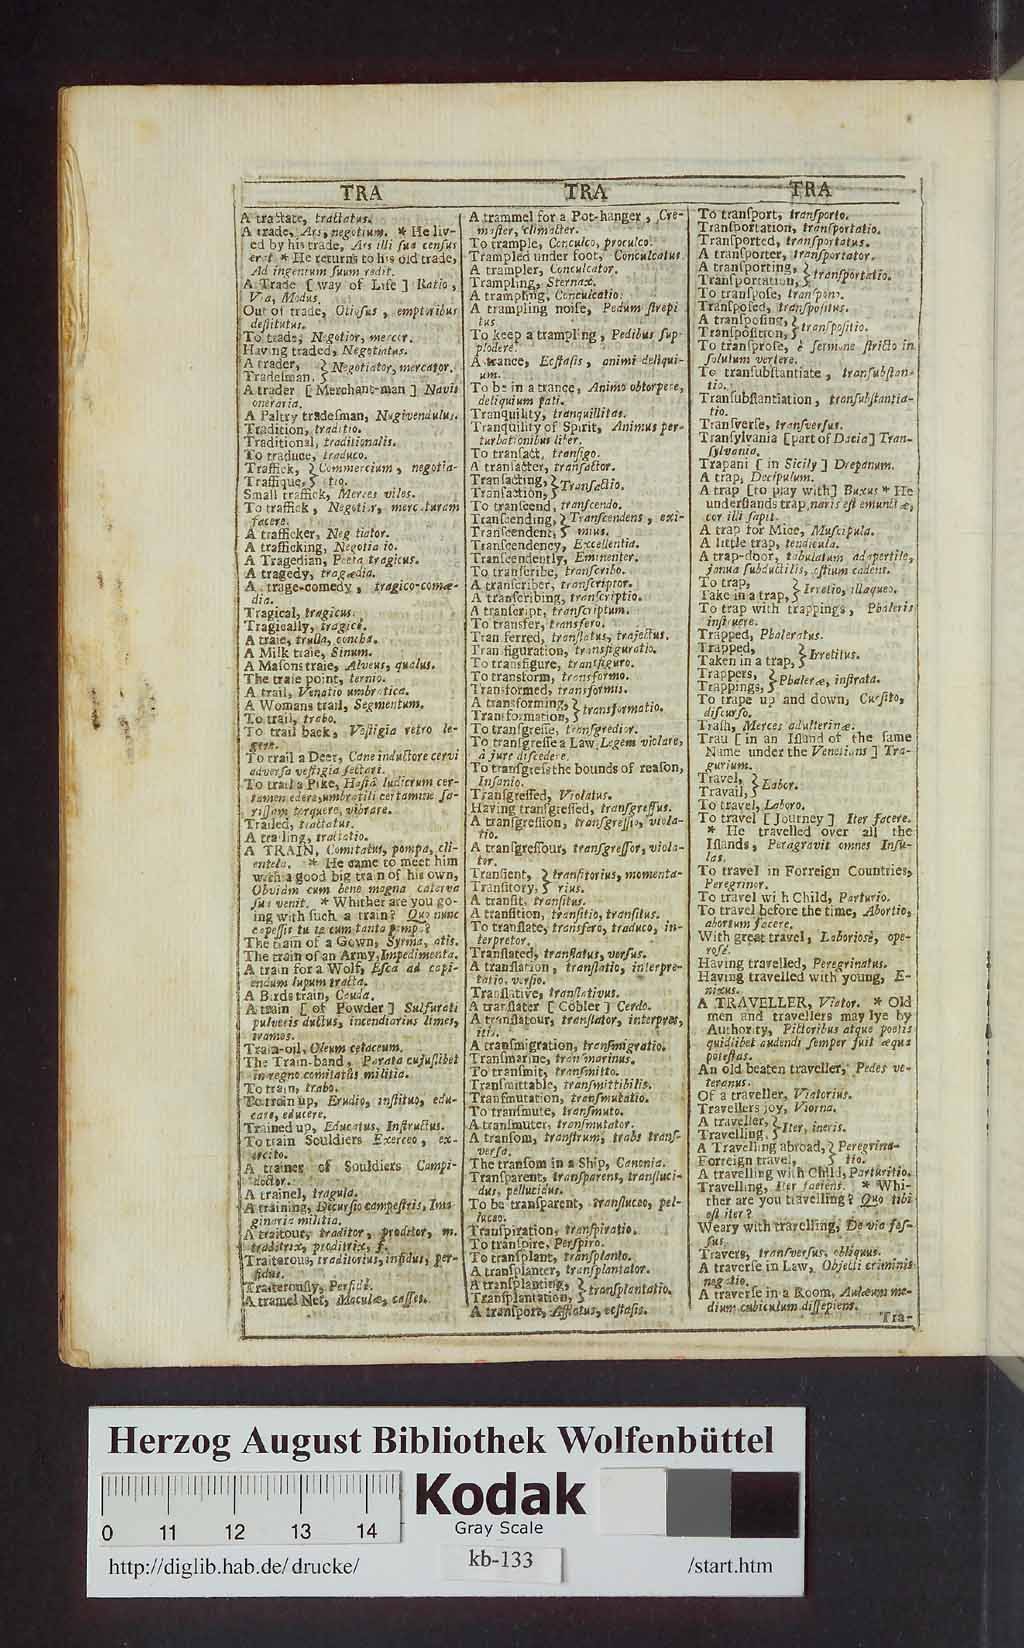 TRA
A tractate, tractatus.
A trade, Ars, negotium. * He liv-
ed by his trade, Ars illi sua census
erat * He returns to his old trade,
Ad ingenium suum redit.
A Trade [ way of Life ] Ratio,
Via, Modus.
Out of trade, Otiosus, emptoribus
destitutus.
To trade, Negotior, mercor.
Having traded, Negotiatus.
A trader, } Negotiator, mercator.
Tradesman, }
A trader [ Merchant-man ] Navis
oneraria.
A Paltry tradesman, Nugivendulus.
Tradition, traditio.
Traditional, traditionalis.
To traduce, traduco.
Traffick, } Commercium, negotia-
Traffique, } tio.
Small traffick, Merces viles.
To traffick, Negotior, mercaturam
facere.
A trafficker, Negotiator.
A trafficking, Negotiatio.
A Tragedian, Poeta tragicus.
A tragedy, tragædia.
A trage-comedy, tragico-comæ-
dia.
Tragical, tragicus.
Tragically, tragicè.
A traie, trulla, concha.
A Milk traie, Sinum.
A Masons traie, Alveus, qualus.
The traie point, ternio.
A trail, Venatio umbratica.
A Womans trail, Segmentum.
To trail, trabo.
To trail back, Vestigia retro le-
gere.
To trail a Deer, Cane inductore cervi
adversa vestigia sectari.
To trail a Pike, Hastâ ludicrum cer-
tamen edere, umbratili certamine sa-
rissam torquere, vibrare.
Trailed, tractatus.
A trailing, tractatio.
A TRAIN, Comitatus, pompa, cli-
entela. * He came to meet him
with a good big train of his own,
Obviam cum bene magna caterva
sua venit. * Whither are you go-
ing with such a train? Quo nunc
capessis tu te cum tanta pompa?
The train of a Gown, Syrma, atis.
The train of an Army, Impedimenta.
A train for a Wolf, Esca ad capi-
endum lupum tracta.
A Birds train, Cauda.
A train [ of Powder ] Sulfurati
pulveris ductus, incendiarius limes,
tramos.
Train-oil, Oleum cetaceum.
The Train-band, Parata cujuslibet
in regno comitatûs militia.
To train, trabo.
To train up, Erudio, instituo, edu-
care, educere.
Trained up, Educatus, Instructus.
To train Souldiers Exerceo, ex-
ercito.
A trainer of Souldiers Campi-
doctor.
A trainel, tragula.
A training, Decursio campestris, Ima
ginaria militia.
A traitour, traditor, proditor, m.
traditrix, proditrix, f.
Traiterous, traditorius, infidus, per-
fidus.
Traiterously, Perfidè.
A tramel Net, Maculæ, casses.
TRA
A trammel for a Pot-hanger, Cre-
master, climacter.
To trample, Conculco, proculco.
Trampled under foot, Conculcatus
A trampler, Conculcator.
Trampling, Sternax.
A trampling, Conculcatio.
A trampling noise, Pedum strepi
tus
To keep a trampling, Pedibus sup-
plodere.
A trance, Ecstasis, animi deliqui-
um.
To be in a trance, Animo obtorpere,
deliquium pati.
Tranquility, tranquillitas.
Tranquility of Spirit, Animus per-
turbationibus liber.
To transact, transigo.
A transacter, transactor.
Transacting, } Transactio.
Transaction, }
To transcend, transcendo.
Transcending, } Transcendens, exi-
Transcendent, } mius.
Transcendency, Excellentia.
Transcendently, Eminenter.
To transcribe, transcribo.
A transcriber, transcriptor.
A transcribing, transcriptio.
A transcript, transcriptum.
To transfer, transfero.
Transferred, translatus, trajectus.
Transfiguration, transfiguratio.
To transfigure, transfiguro.
To transform, transformo.
Transformed, transformis.
A transforming, } transformatio.
Transformation, }
To transgresse, transgredior.
To transgresse a Law, Legem violare,
à jure discedere.
To transgress the bounds of reason,
Insanio.
Transgressed, Violatus.
Having transgressed, transgressus.
A transgression, transgressio, viola-
tio.
A transgressour, transgressor, viola-
tor.
Transient, } transitorius, momenta-
Transitory, } rius.
A transit, transitus.
A transition, transitio, transitus.
To translate, transfero, traduco, in-
terpretor.
Translated, translatus, versus.
A translation, translatio, interpre-
tatio, versio.
Translative, translativus.
A translater [ Cobler ] Cerdo.
A translatour, translator, interpres,
itis.
A transmigration, transmigratio.
Transmarine, transmarinus.
To transmit, transmitto.
Transmittable, transmittibilis.
Transmutation, transmutatio.
To transmute, transmuto.
A transmuter, transmutator.
A transom, transtrum, trabs trans-
versa.
The transom in a Ship, Canonia.
Transparent, transparens, transluci-
dus, pellucidus.
To be transparent, transluceo, pel-
luceo.
Transpiration, transpiratio.
To transpire, Perspiro.
To transplant, transplanto.
A transplanter, transplantator.
A transplanting, } transplantatio.
Transplantation, }
A transport, Afflatus, ecstasis.
TRA
To transport, transporto.
Transportation, transportatio.
Transported, transportatus.
A transporter, transportator.
A transporting, } transportatio.
Transportation, }
To transpose, transpono.
Transposed, transpositus.
A transposing, } transpositio.
Transposition, }
To transprose, è sermone stricto in
solutum vertere.
To transubstantiate, transubstan-
tio.
Transubstantiation, transubstantia-
tio.
Transverse, transversus.
Transylvania [part of Dacia] Tran-
sylvania.
Trapani [ in Sicily ] Drepanum.
A trap, Decipulum.
A trap [to play with] Buxus * He
understands trap, naris est emunctæ,
cor illi sapit.
A trap for Mice, Muscipula.
A little trap, tendicula.
A trap-door, tabulatum adapertile,
janua subductilis, ostium cadens.
To trap, } Irretio, illaqueo.
Take in a trap, }
To trap with trappings, Phaleris
instruere.
Trapped, Phaleratus.
Trapped, } Irretitus.
Taken in a trap, }
Trappers, } Phaleræ, instrata.
Trappings, }
To trape up and down, Cursito,
discurso.
Trash, Merces adulterinæ.
Trau [ in an Island of the same
Name under the Venetians ] Tra-
gurium.
Travel, } Labor.
Travail, }
To travel, Laboro.
To travel [ Journey ] Iter facere.
* He travelled over all the
Islands, Peragravit omnes Insu-
las.
To travel in Forreign Countries,
Peregrinor.
To travel with Child, Parturio.
To travel before the time, Abortio,
abortum facere.
With great travel, Laboriosè, ope-
rosè.
Having travelled, Peregrinatus.
Having travelled with young, E-
nixus.
A TRAVELLER, Viator. * Old
men and travellers may lye by
Authority, Pictoribus atque poetis
quidlibet audendi semper fuit æqua
potestas.
An old beaten traveller, Pedes ve-
teranus.
Of a traveller, Viatorius.
Travellers joy, Viorna.
A traveller, } Iter, ineris.
Travelling, }
A Travelling abroad, } Peregrina-
Forreign travel, } tio.
A travelling with Child, Parturitio.
Travelling, Iter faciens. * Whi-
ther are you travelling? Quo tibi
est iter?
Weary with travelling, De via fes-
sus.
Travers, transversus, obliquus.
A traverse in Law, Objecti criminis
negatio.
A traverse in a Room, Aulæum me-
dium cubiculum dissepiens.
Tra-
Herzog August Bibliothek Wolfenbüttel
0 11 12 13 14
Kodak
Gray Scale
http://diglib.hab.de/drucke/ kb-133 /start.htm